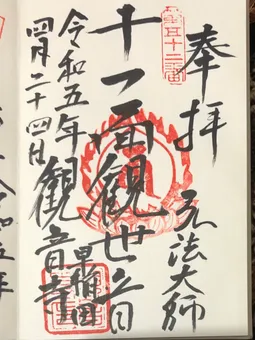 第五十二番
奉拝 弘法大師
十一面観世音
早稲田
観音寺
令和五年
四月二十四日